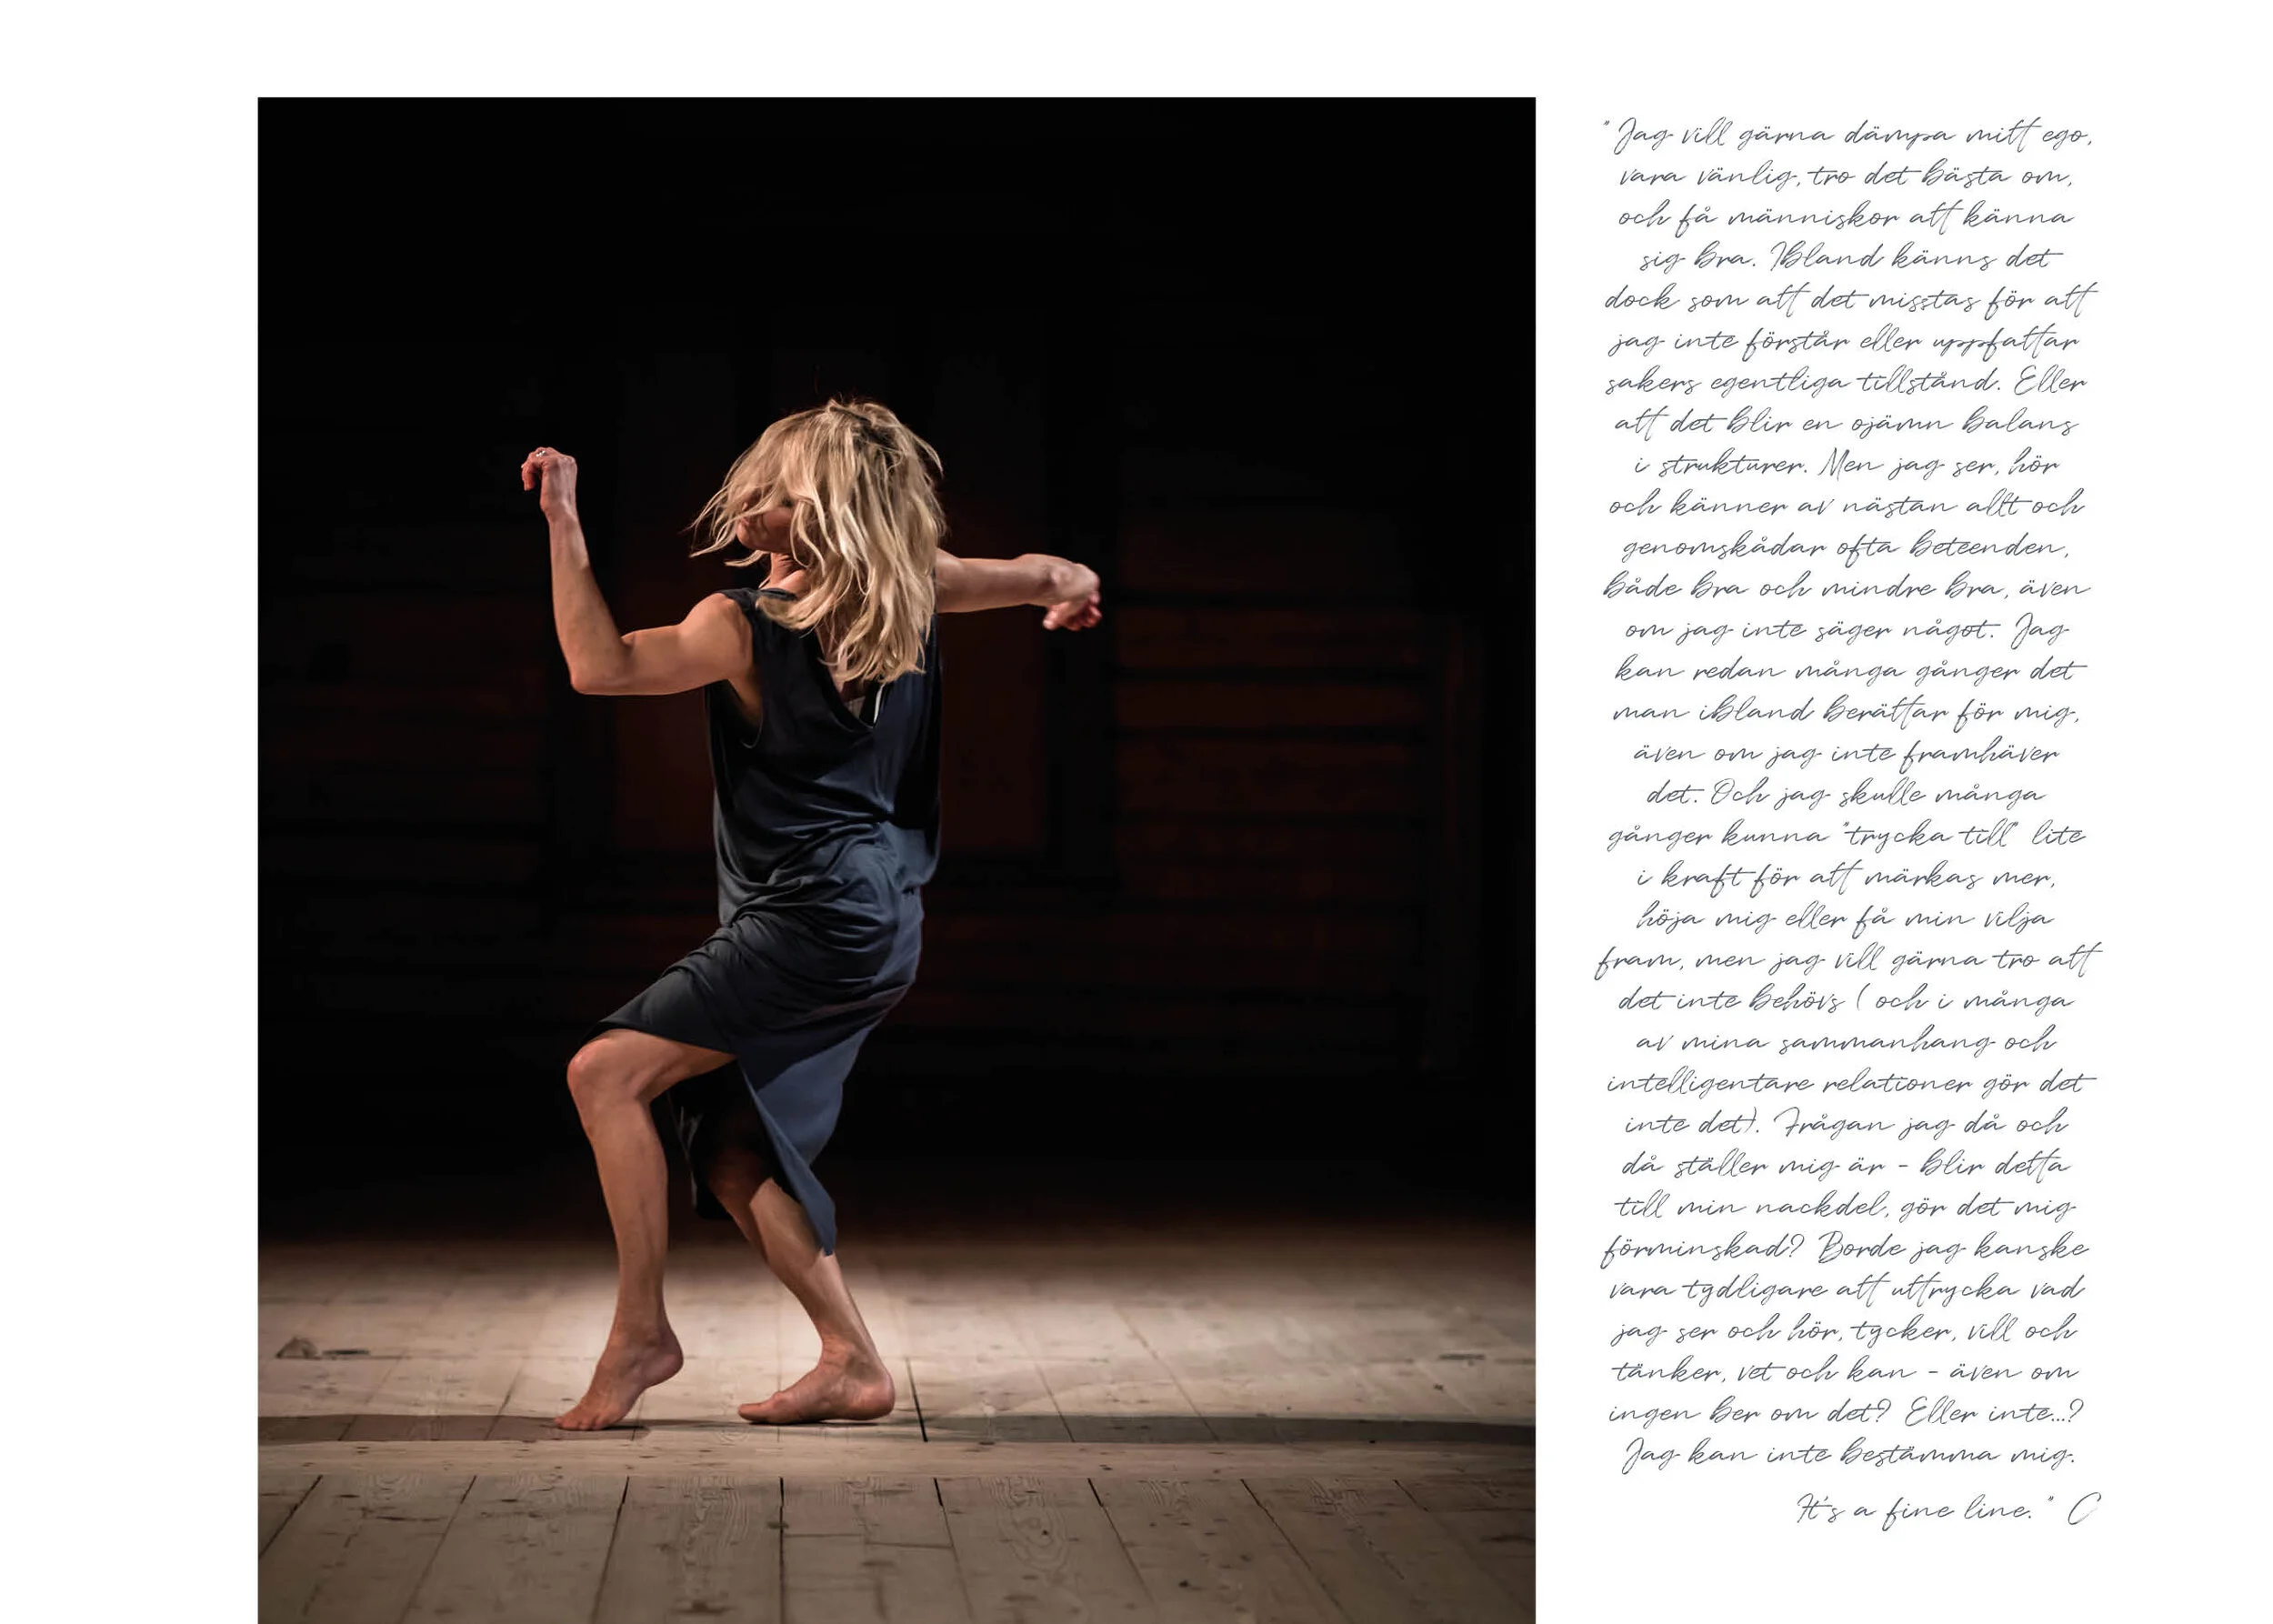 "Jag vill gärna dämpa mitt ego,
vara vänlig, tro det bästa om,
och få människor att känna
sig bra. Ibland känns det
dock som att det misstas för att
jag inte förstår eller uppfattar
sakers egentliga tillstånd. Eller
att det blir en ojämn balans
i strukturer. Men jag ser, hör
och känner av nästan allt och
genomskådar ofta beteenden,
både bra och mindre bra, även
om jag inte säger något. Jag
kan redan många gånger det
man ibland berättar för mig,
även om jag inte framhäver
det. Och jag skulle många
gånger kunna "trycka till" lite
i kraft för att märkas mer,
höja mig eller få min vilja
fram, men jag vill gärna tro att
det inte behövs ( och i många
av mina sammanhang och
intelligentare relationer gör det
inte det). Frågan jag då och
då ställer mig är - blir detta
till min nackdel, gör det mig
förminskad? Borde jag kanske
vara tydligare att uttrycka vad
jag ser och hör, tycker, vill och
tänker, vet och kan - även om
ingen ber om det? Eller inte...?
Jag kan inte bestämma mig.
It's a fine line." C